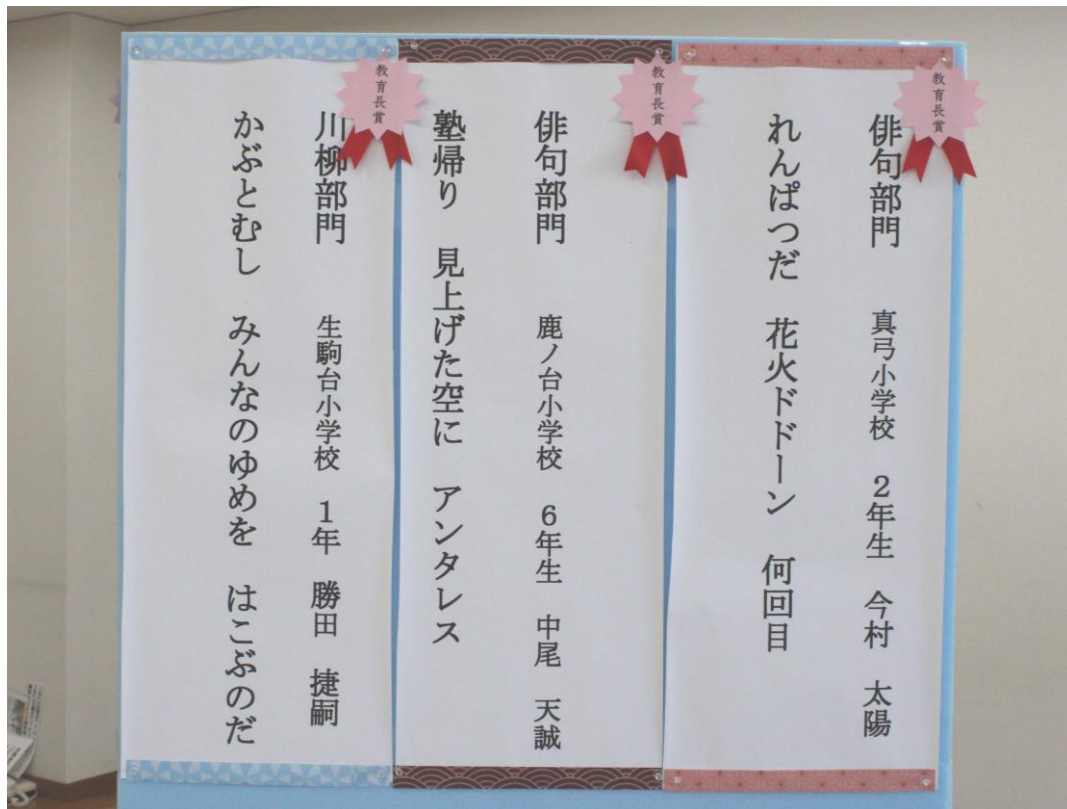 教育長賞
俳句部門 真弓小学校 2年生 今村 太陽
れんぱつだ 花火ドドーン 何回目
教育長賞
俳句部門 鹿ノ台小学校 6年生 中尾 天誠
塾帰り 見上げた空に アンタレス
教育長賞
川柳部門 生駒台小学校 1年 勝田 捷嗣
かぶとむし みんなのゆめを はこぶのだ